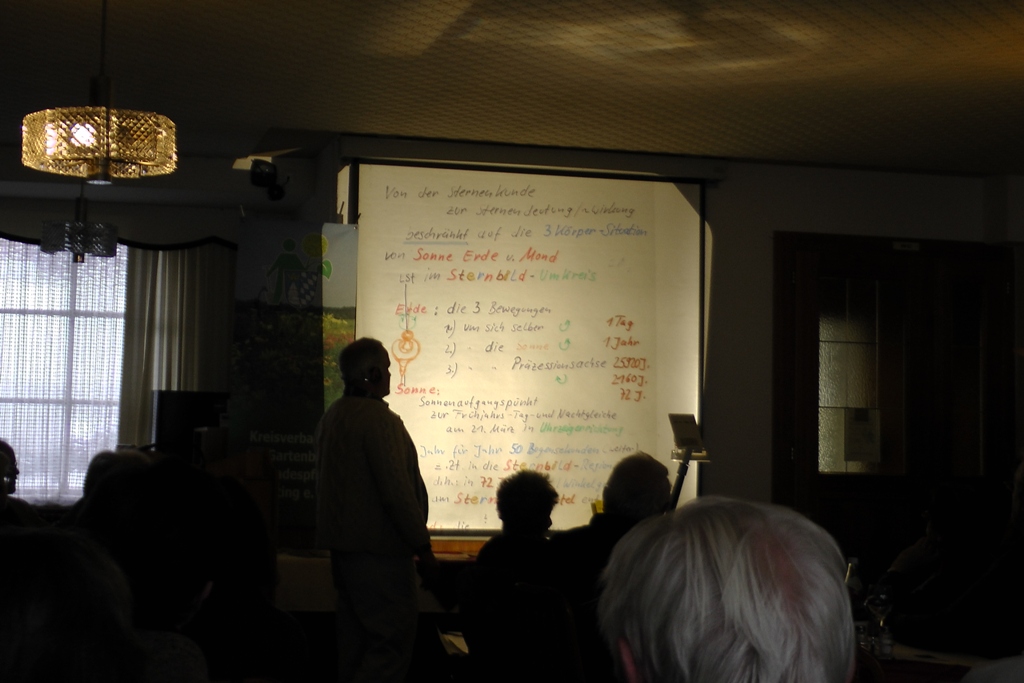 Von der Sternenkunde
zur Sternendeutung/~wirkung
geschränkt auf die 3 Körper-Situation
von Sonne Erde u. Mond
ist im Sternbild-Umkreis
Erde: die 3 Bewegungen
1) um sich selber 1 Tag
2.) " die Sonne 1 Jahr
3.) " " Präzessionsachse
2160 J.
72 J.
Sonne:
Sonnenaufgangspunkt
zur Frühjahrs-Tag-und Nachtgleiche
am 21. März in Uhrzeigerrichtung
Jahr für Jahr 50 Bogensekunden
z. Zt. in die Sternbild-
d.h. in 72
am Stern
Kreisverba
Gartenb
despf
ing e.